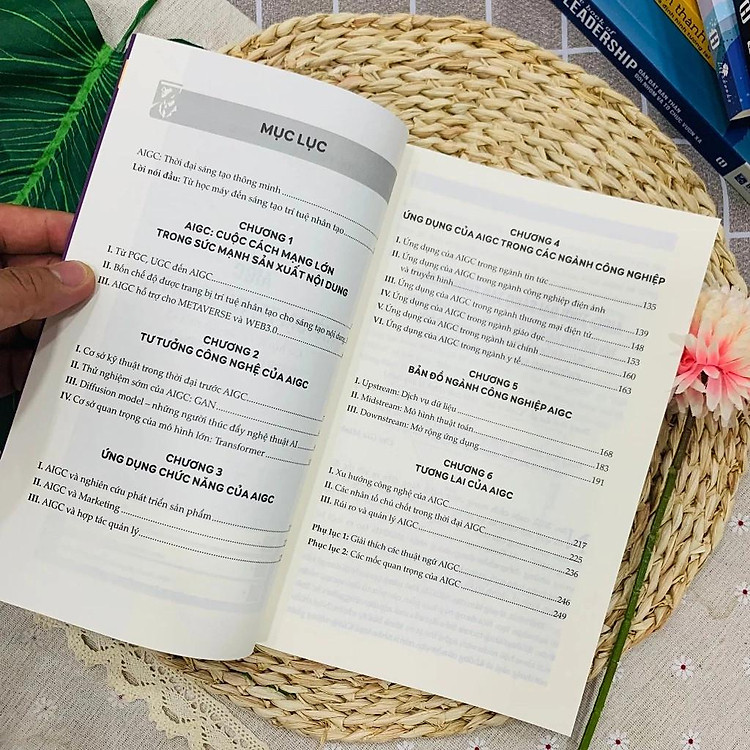 MỤC LỤC
AIGC: Thời đại sáng tạo thông minh
Lời nói đầu: Từ học máy đến sáng tạo trí tuệ nhân tạo
CHƯƠNG 1
AIGC: CUỘC CÁCH MẠNG LỚN
TRONG SỨC MẠNH SẢN XUẤT NỘI DUNG
I. Từ PGC, UGC đến AIGC
II. Bốn chế độ được trang bị trí tuệ nhân tạo cho sáng tạo nội dung
III. AIGC hỗ trợ cho METAVERSE và WEB3.0
CHƯƠNG 2
TƯ TƯỞNG CÔNG NGHỆ CỦA AIGC
I. Cơ sở kỹ thuật trong thời đại trước AIGC
II. Thử nghiệm sớm của AIGC: GAN
III. Diffusion model – những người thúc đẩy nghệ thuật AI
IV. Cơ sở quan trọng của mô hình lớn: Transformer
CHƯƠNG 3
ỨNG DỤNG CHỨC NĂNG CỦA AIGC
I. AIGC và nghiên cứu phát triển sản phẩm
II. AIGC và Marketing
III. AIGC và hợp tác quản lý
CHƯƠNG 4
ỨNG DỤNG CỦA AIGC TRONG CÁC NGÀNH CÔNG NGHIỆP
I. Ứng dụng của AIGC trong ngành tin tức 135
II. Ứng dụng của AIGC trong ngành công nghiệp điện ảnh
và truyền hình 139
III. Ứng dụng của AIGC trong ngành thương mại điện tử 148
IV. Ứng dụng của AIGC trong ngành giáo dục 153
V. Ứng dụng của AIGC trong ngành tài chính 160
VI. Ứng dụng của AIGC trong ngành y tế 163
CHƯƠNG 5
BẢN ĐỒ NGÀNH CÔNG NGHIỆP AIGC
I. Upstream: Dịch vụ dữ liệu 168
II. Midstream: Mô hình thuật toán 183
III. Downstream: Mở rộng ứng dụng 191
CHƯƠNG 6
TƯƠNG LAI CỦA AIGC
I. Xu hướng công nghệ của AIGC 217
II. Các nhân tố chủ chốt trong thời đại AIGC 225
III. Rủi ro và quản lý AIGC 236
Phụ lục 1: Giải thích các thuật ngữ AIGC 246
Phục lục 2: Các mốc quan trọng của AIGC 249
book of
LEADERSHIP
DẪN DẮT BẢN THÂN
ĐỘI NHÓM VÀ TỔ CHỨC VƯƠN XA